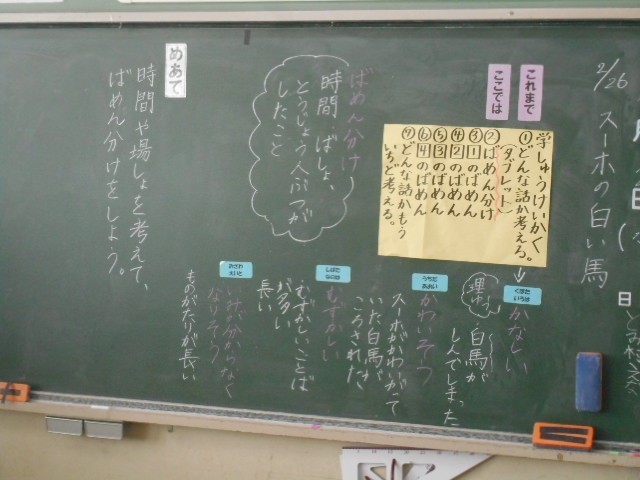 2/26
スーホの白い馬
これまで
ここでは
学しゅうけいかく
①どんな話か考える。
(タブレット)
②ばめん分け
③①のばめん
④②のばめん
⑤③のばめん
⑥④のばめん
⑦どんな話かもう
いちど考える。
ばめん分け
時間、ばしょ、
とうじょう人ぶつが
したこと
めあて
時間や場しょを考えて、
ばめん分けをしよう。
かなしい
理ゆう
白馬が
しんでしまった
かわいそう
スーホがかわいがって
いた白馬が
ころされた
むずかしい
むずかしいことば
が多い
長い
いみが分からなく
なりそう
ものがたりが長い